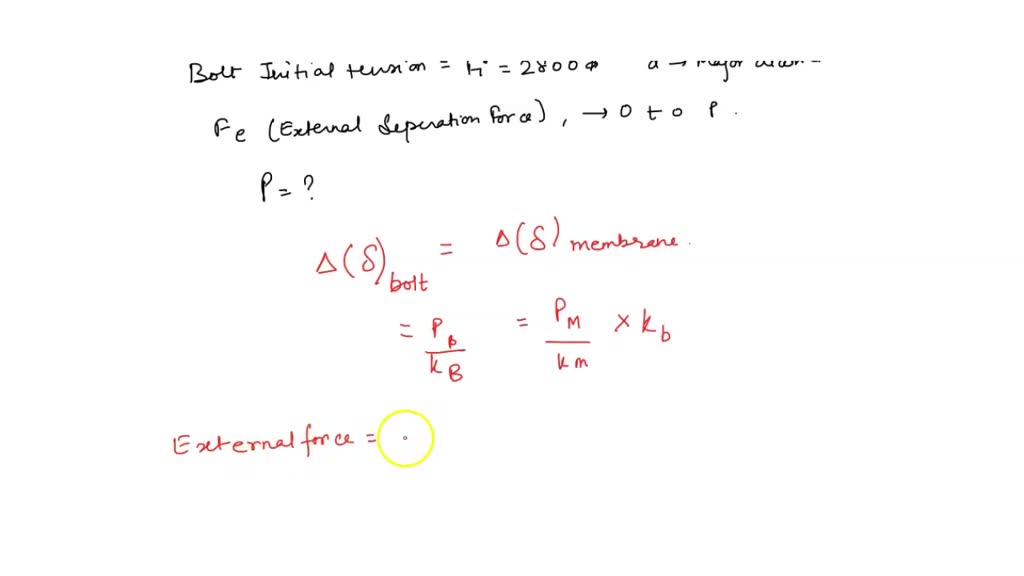 Bolt Initial tension = Fi = 2800 d → Major
Fe (External Seperation force), → 0 to P.
P = ?
Δ(δ)bolt = Δ(δ) membrane.
= PB/kB = PM/km × kb
External force =